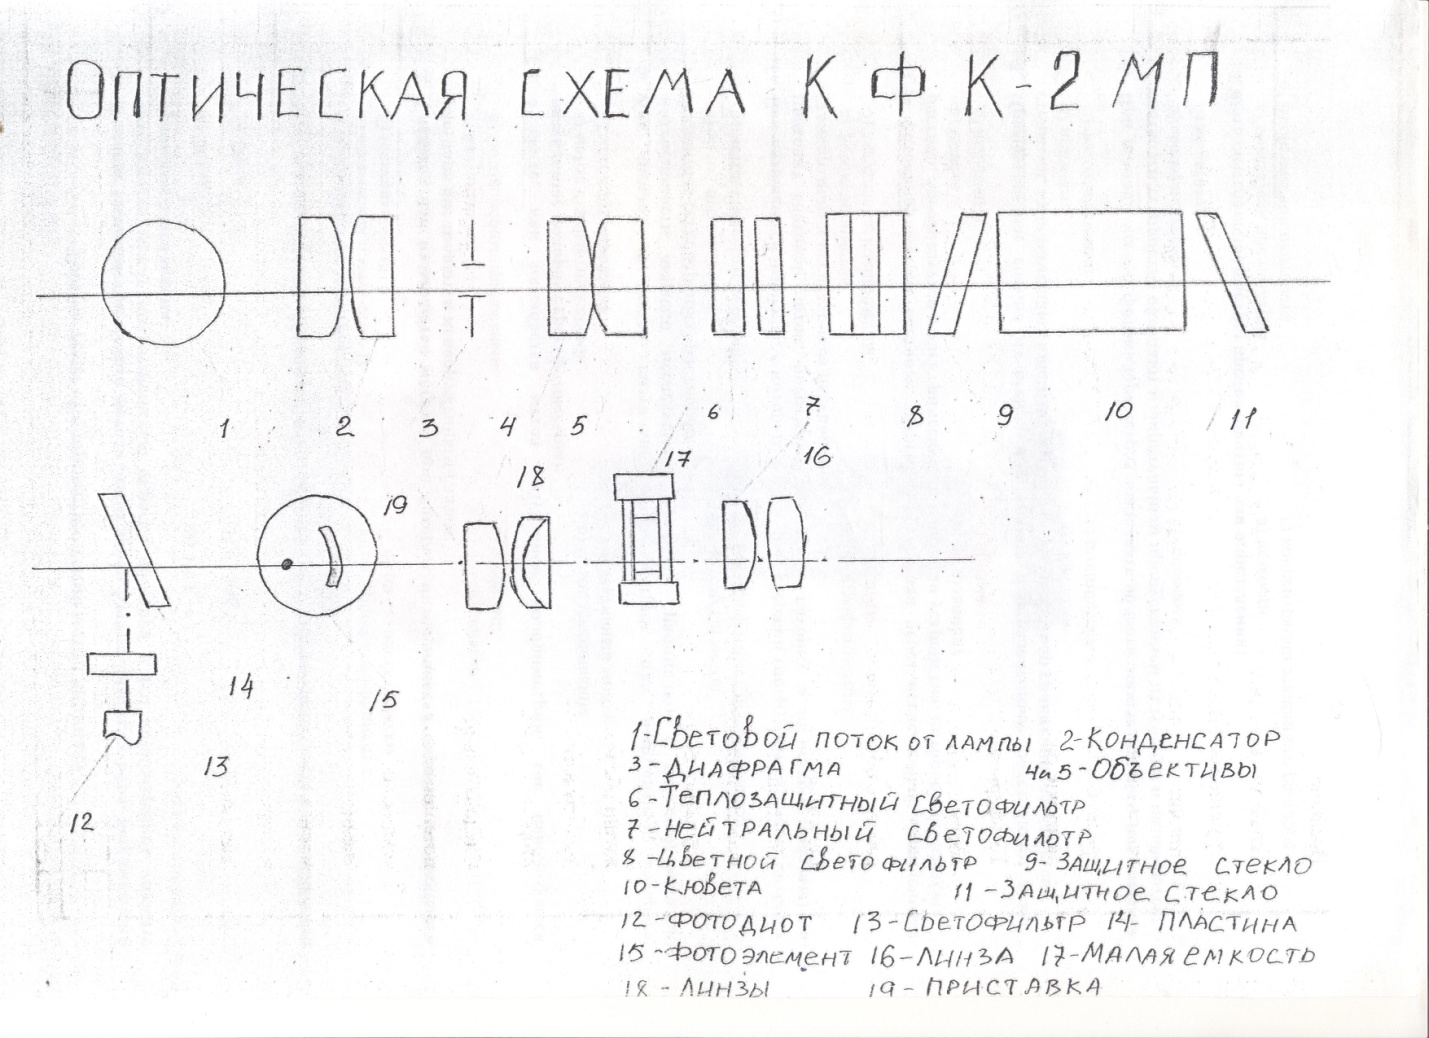 ОПТИЧЕСКАЯ СХЕМА КФК-2МП
1 2 3 4 5 6 7 8 9 10 11
19 18 17 16
14 15
13
12
1-СВЕТОВОЙ ПОТОК ОТ ЛАМПЫ 2-КОНДЕНСАТОР
3-ДИАФРАГМА 4и5-ОБЪЕКТИВЫ
6-ТЕПЛОЗАЩИТНЫЙ СВЕТОФИЛЬТР
7-НЕЙТРАЛЬНЫЙ СВЕТОФИЛЬТР
8-ЦВЕТНОЙ СВЕТОФИЛЬТР 9-ЗАЩИТНОЕ СТЕКЛО
10-КЮВЕТА 11-ЗАЩИТНОЕ СТЕКЛО
12-ФОТОДИОТ 13-СВЕТОФИЛЬТР 14-ПЛАСТИНА
15-ФОТОЭЛЕМЕНТ 16-ЛИНЗА 17-МАЛАЯ ЕМКОСТЬ
18-ЛИНЗЫ 19-ПРИСТАВКА